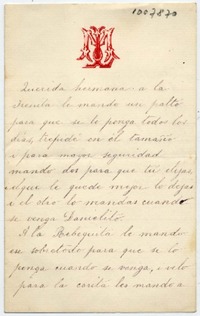 1007870
Querida hermana a la
Irenita le mando un paltó
para que se lo ponga todos los
días, trepidé en el tamaño
i para mayor seguridad
mando dos para que tú elijas
el que le quede mejor lo dejas
i el otro lo mandas cuando
se venga Danielito.
A la Rebequita le mando
un sobretodo para que se lo
ponga cuando se venga, i solo
para la casita les mando a